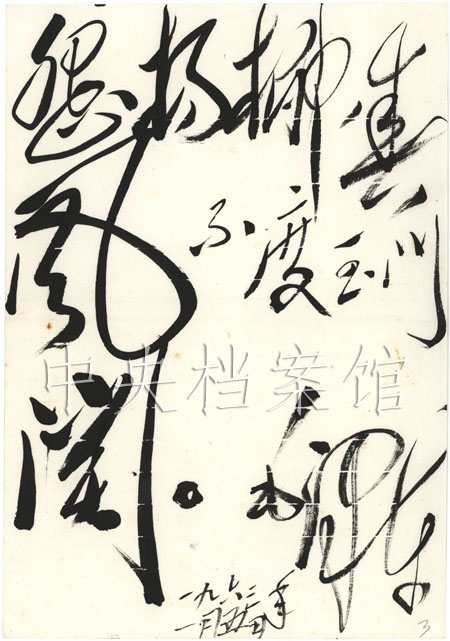 怨杨柳春
风不度玉门
关。
毛泽东
一九六二年
一月五日
中央档案馆
3